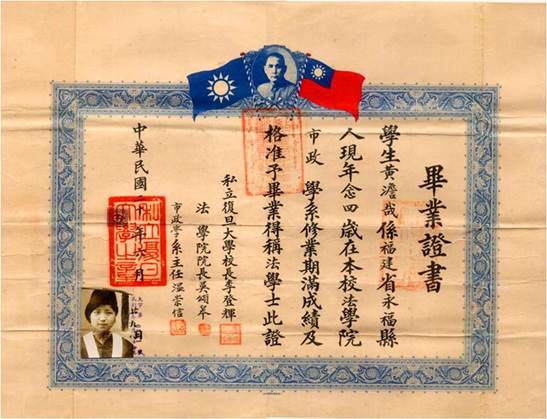 畢業證書
學生黃澹哉係福建省永福縣
人現年念四歲在本校法學院
市政 學系修業期滿成績及
格准予畢業得稱法學士此證
私立復旦大學校長李登輝
法學院院長吳頌皋
市政學系主任溫崇信
中華民國二十 年六月